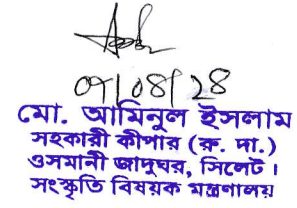 ০৭/০৪/২৪
মো. আমিনুল ইসলাম
সহকারী কীপার (রু. দা.)
ওসমানী জাদুঘর, সিলেট।
সংস্কৃতি বিষয়ক মন্ত্রণালয়